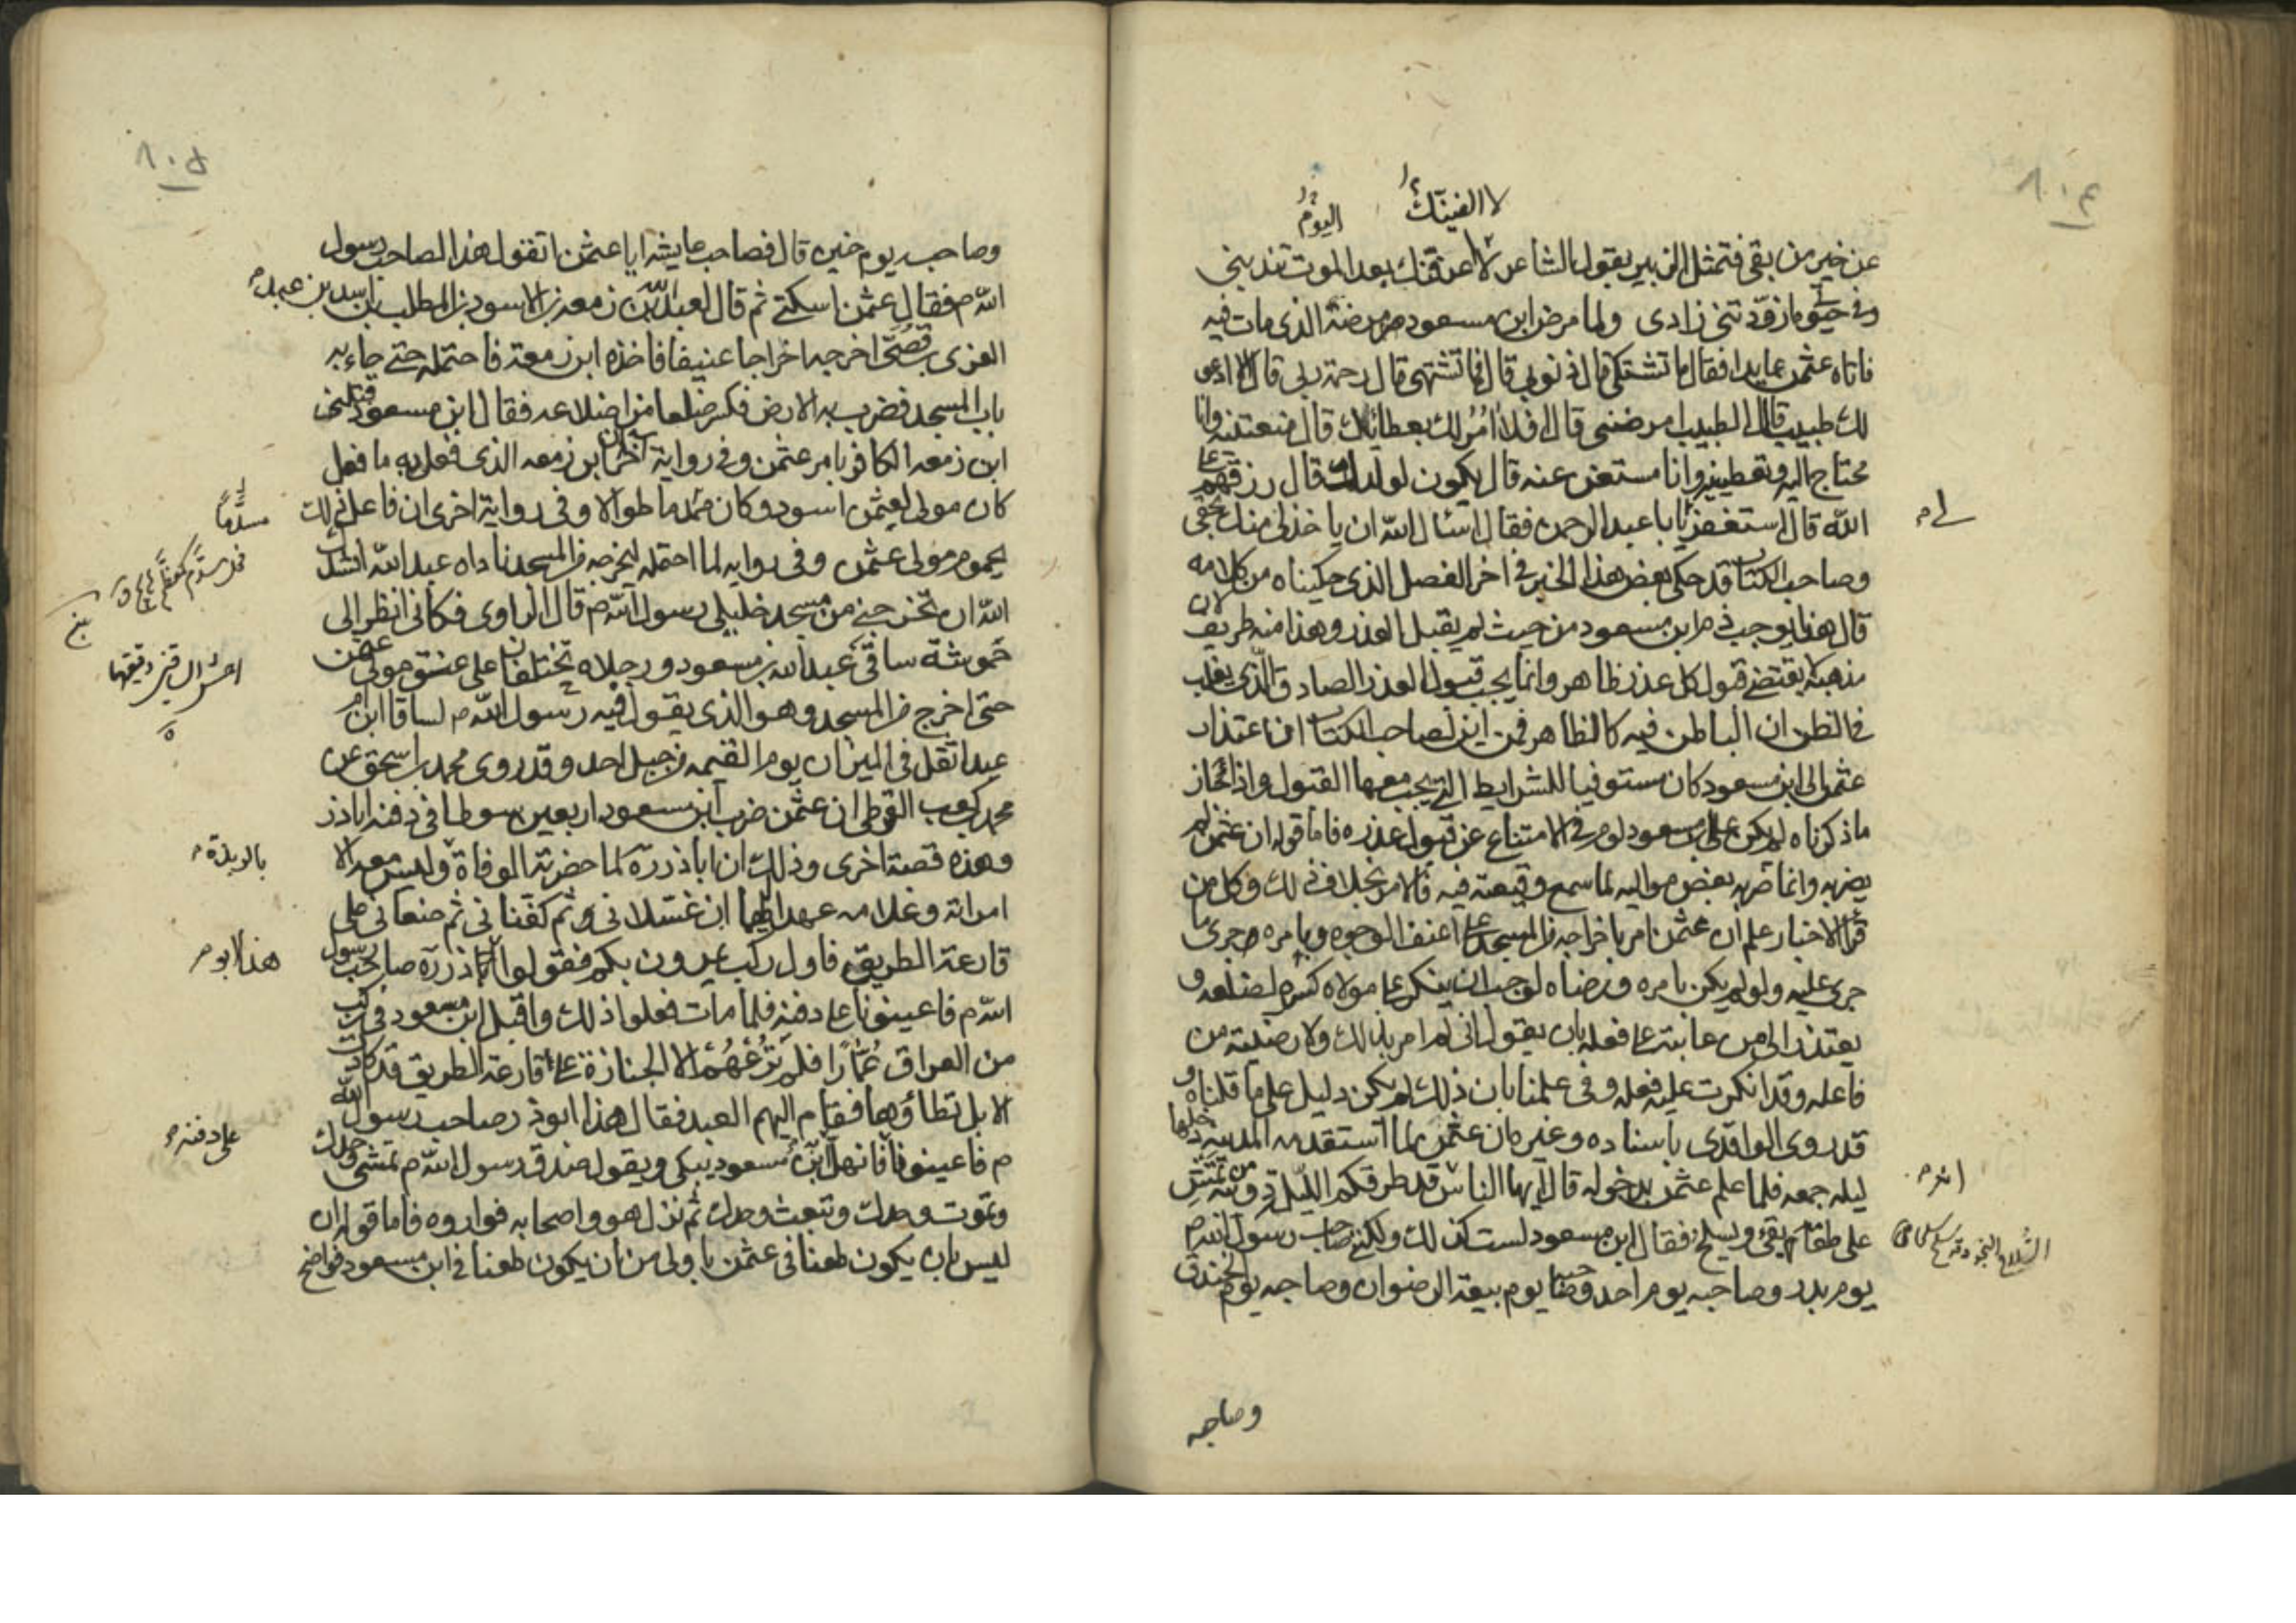 ٨٠٤
لا الفينك
اليوم
عن خير من بقى فتمثل الزبير بقول الشاعر لا اعرفنك بعد الموت تندبني
وفي حيوتي ما زودتني زادى ولما مرض ابن مسعود مرضه الذى مات فيه
فاتاه عثمن عايدا فقال ما تشتكى قال ذنوبى قال فما تشتهى قال رحمة ربى قال الا ادعو
لك طبيبا قال الطبيب امرضنى قال افلا امر لك بعطائك قال منعتنيه وانا
محتاج اليه وتعطينيه وانا مستغن عنه قال يكون لولدك قال رزقهم على
الله قال استغفر لى يا با عبد الرحمن فقال اسئال الله ان ياخذ لى منك بحقى
وصاحب الكتاب قد حكى بعض هذا الخبر فى اخر الفصل الذى حكيناه من كلامه
قال هذا يوجب ذم ابن مسعود من حيث لم يقبل العذر وهذا منه طريف لان
مذهبه يقتضى قبول كل عذر ظاهر وانما يجب قبول العذر الصادق الذى يغلب
فى الظن ان الباطن فيه كالظاهر فمن اين لصاحب الكتاب ان اعتذار
عثمن الى ابن مسعود كان مستوفيا للشرايط التى يجب معها القبول واذا جاز
ماذكرناه لم يكن على ابن مسعود لوم فى الامتناع عن قبول عذره فاما قوله ان عثمن لم
يضربه وانما ضربه بعض مواليه لما سمع وقيعته فيه فالامر بخلاف ذلك وكل من
قرا الاخبار علم ان عثمن امر باخراجه من المسجد على اعنف الوجوه وبامره جرى ما
جرى عليه ولو لم يكن بامره ورضاه لوجب ان ينكر على مولاه كسره لضلعه و
يعتذر الى من عاتبه على فعله بان يقول انى لم امر بذلك ولا رضيته من
فاعله وقد انكرت عليه فعله وفى علمنا بان ذلك لم يكن دليل على ما قلناه و
قد روى الواقدى باسناده وغيره ان عثمن لما استقدمه المدينة دخلها
ليله جمعه فلما علم عثمن بدخوله قال ايها الناس قد طرقكم الليلة دويبة من تمش
على طعامه يقئ ويسلح فقال ابن مسعود لست كذلك ولكنى صاحب رسول الله ص
يوم بدر وصاحبه يوم احد وصاحبه يوم بيعة الرضوان وصاحبه يوم الخندق
وصاحبه
٨٠٥
وصاحبه يوم حنين قال فصاحت عايشه ايا عثمن اتقول هذا لصاحب رسول
الله ص فقال عثمن اسكتى ثم قال لعبد الله بن زمعه بن الاسود بن المطلب بن اسد بن عبد
العزى بن قصى اخرجه اخراجا عنيفا فاخذه ابن زمعه فاحتمله حتى جاء به
باب المسجد فضرب به الارض فكسر ضلعا من اضلاعه فقال ابن مسعود قتلنى
ابن زمعه الكافر بامر عثمن وفى رواية اخرى ان ابن زمعه الذى فعل به ما فعل
كان مولى لعثمن اسود وكان مسدما طوالا وفى رواية اخرى ان فاعل ذلك
يحموم مولى عثمن وفى روايه لما احتمله ليخرجه من المسجد ناداه عبد الله انشدك
الله ان تخرجنى من مسجد خليلى رسول الله ص قال الراوى فكانى انظر الى
حموشة ساقى عبد الله بن مسعود ورجلاه تختلفان على عنق مولى عثمن
حتى اخرج من المسجد وهو الذى يقول فيه رسول الله ص لساقا ابن ام
عبد اثقل فى الميزان يوم القيمه من جبل احد وقد روى محمد بن اسحق عن
محمد بن كعب القرظى ان عثمن ضرب ابن مسعود اربعين سوطا فى دفنه اباذر
وهذه قصة اخرى وذلك ان اباذر ره لما حضرته الوفاة وليس معه الا
امراته وغلامه عهد اليهما ان غسلانى ثم كفنانى ثم ضعانى على
قارعة الطريق فاول ركب يمرون بكم فقولوا اباذر ره صاحب رسول
الله ص فاعينونا على دفنه فلما مات فعلوا ذلك واقبل ابن مسعود فى ركب
من العراق عمارا فلم ترعهم الا الجنازة على قارعة الطريق قد كادت
الابل تطاؤها فقام اليهم العبد فقال هذا ابوذر صاحب رسول الله
ص فاعينونا فانهل ابن مسعود يبكى ويقول صدق رسول الله ص تمشى وحدك
وتموت وحدك وتبعث وحدك ثم نزل هو واصحابه فواروه فاما قوله ان
ليس بان يكون طعنا فى عثمن باولى من ان يكون طعنا فى ابن مسعود فواضح
مسدما
بالربذة
هذا ابو
على دفنه